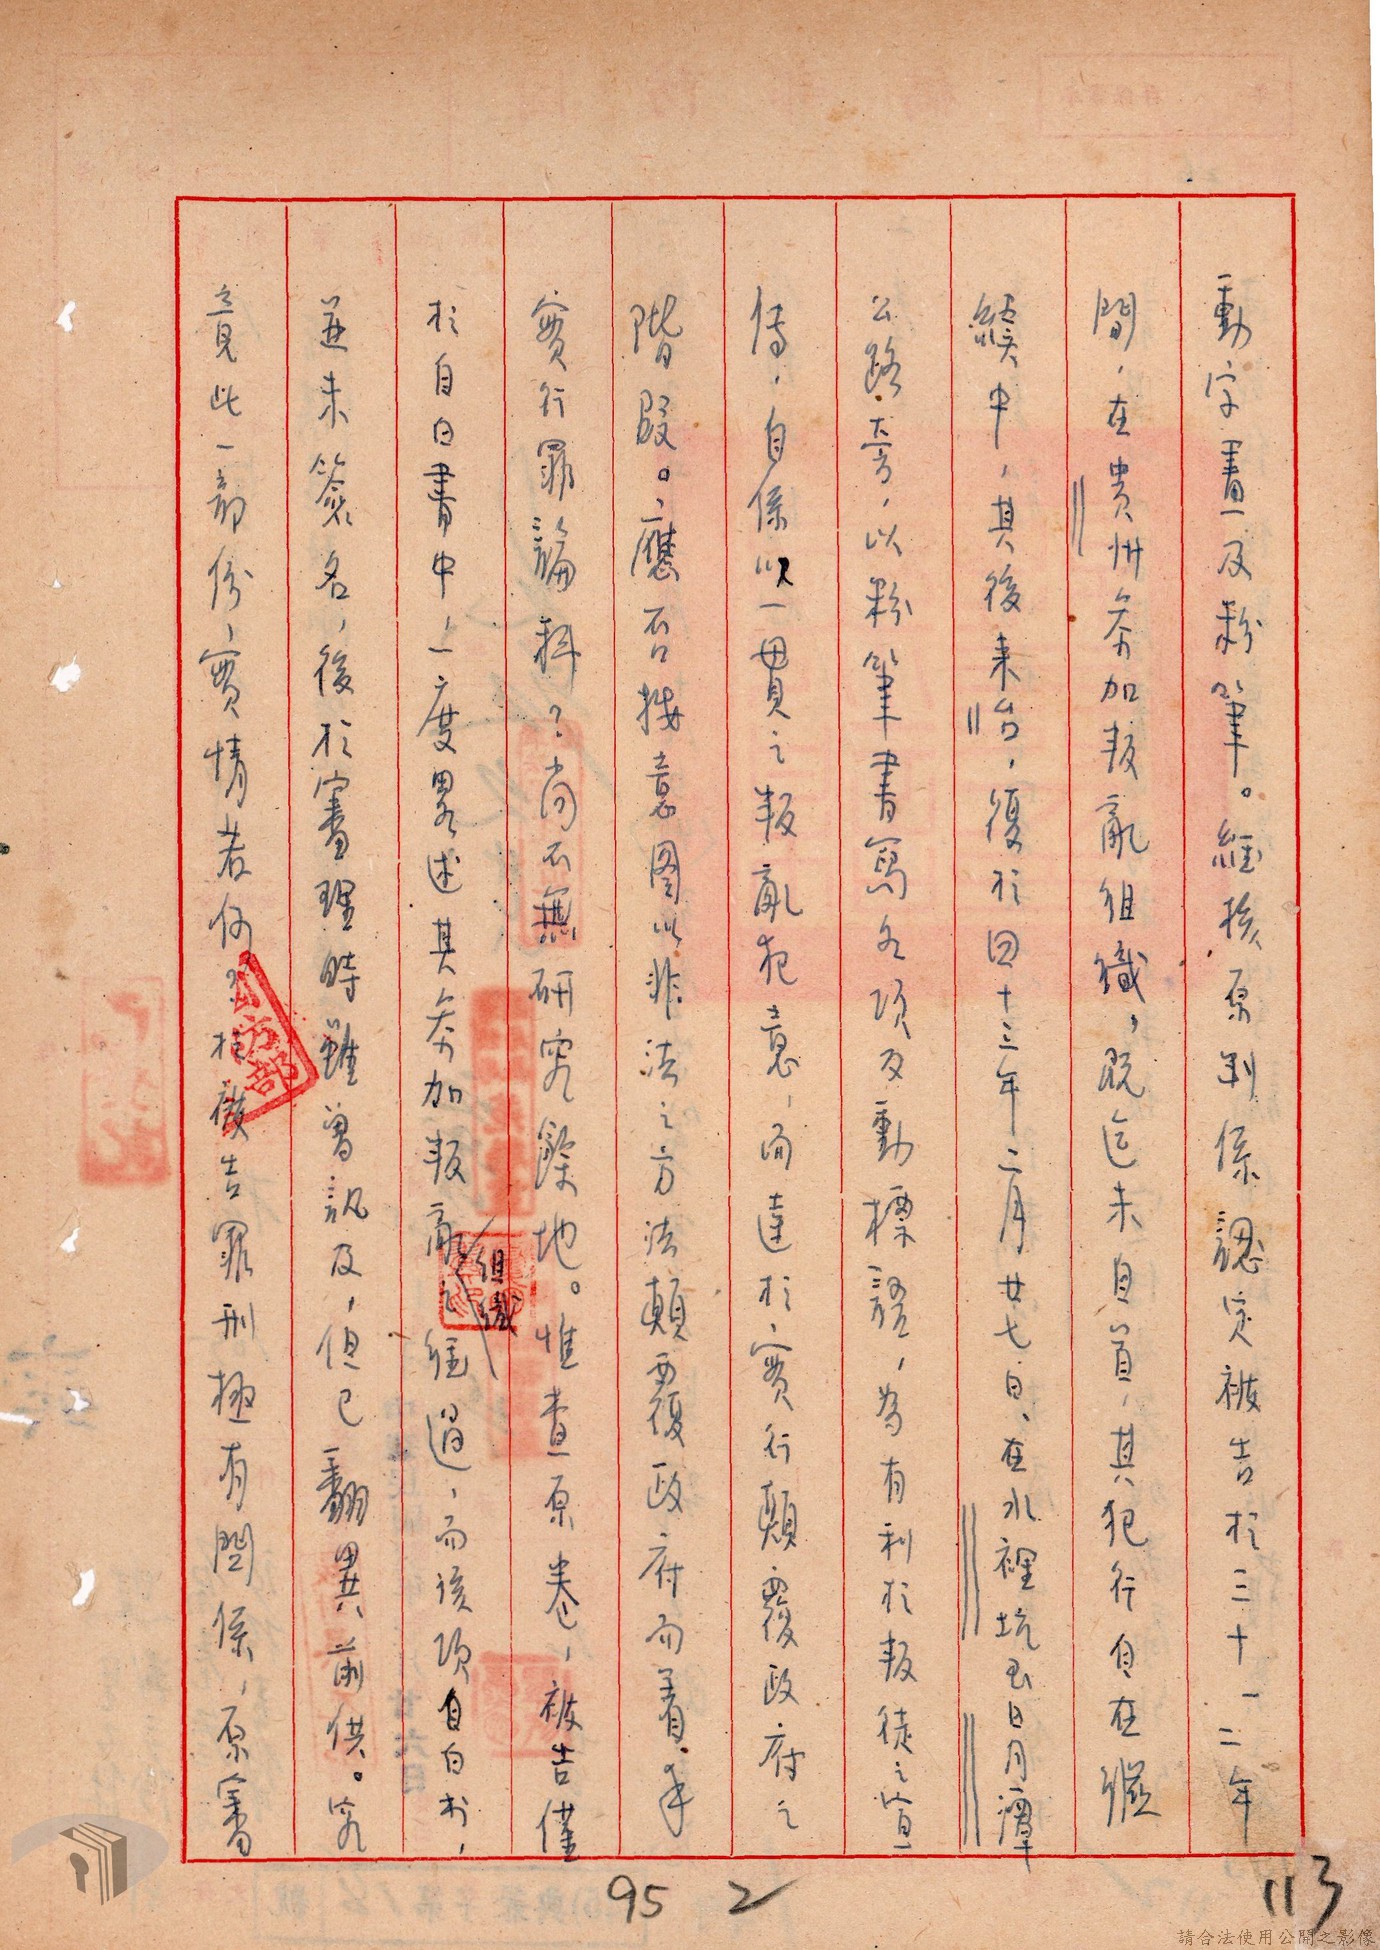 動字畫及粉筆。經核原判係認定被告於三十一、二年
間,在貴州參加叛亂組織,既迄未自首,其犯行自在繼
續中,其後來台,復於四十三年二月廿七日、在水裡坑至日月潭
公路旁,以粉筆書寫各項反動標語,為有利於叛徒之宣
傳,自係以一貫之叛亂犯意,而達於實行顛覆政府之
階段。應否按意圖以非法之方法顛覆政府而着手
實行罪論科?尚不無研究餘地。惟查原卷,被告僅
於自白書中,一度畧述其參加叛亂組織經過,而該項自白書,
並未簽名,後於審理時雖曾訊及,但已翻異前供。究
竟此一部份,實情若何?於被告罪刑極有關係,原審
國防部
95 2
113
請合法使用公開之影像